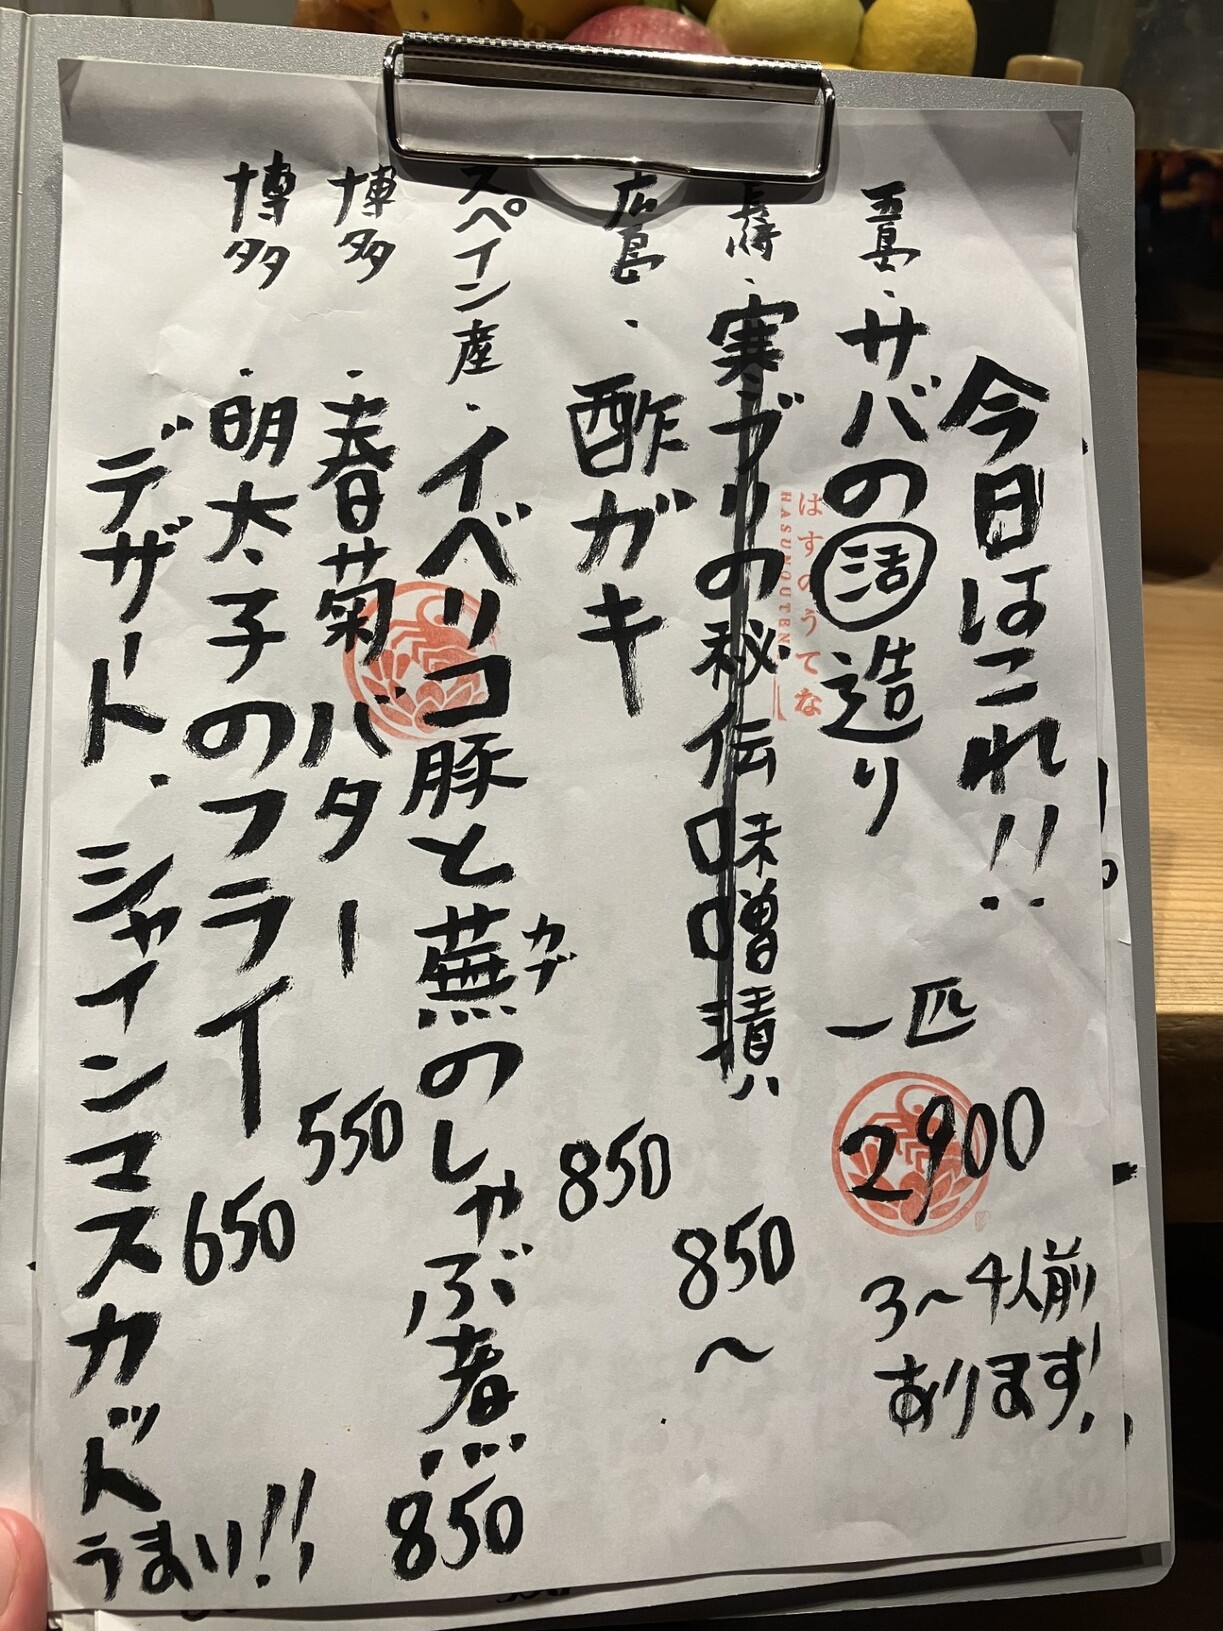 今日はこれ!!
五島・サバの活造り
一匹
2900
3〜4人前
あります!!
長崎・寒ブリの秘伝味噌漬け
850
〜
広島・酢ガキ
850
スペイン産・イベリコ豚と蕪のしゃぶ煮
カブ
850
博多・春菊バター
550
博多・明太子のフライ
650
デザート・シャインマスカット
うまい!!
はすのうてな
HASUNOUTENA